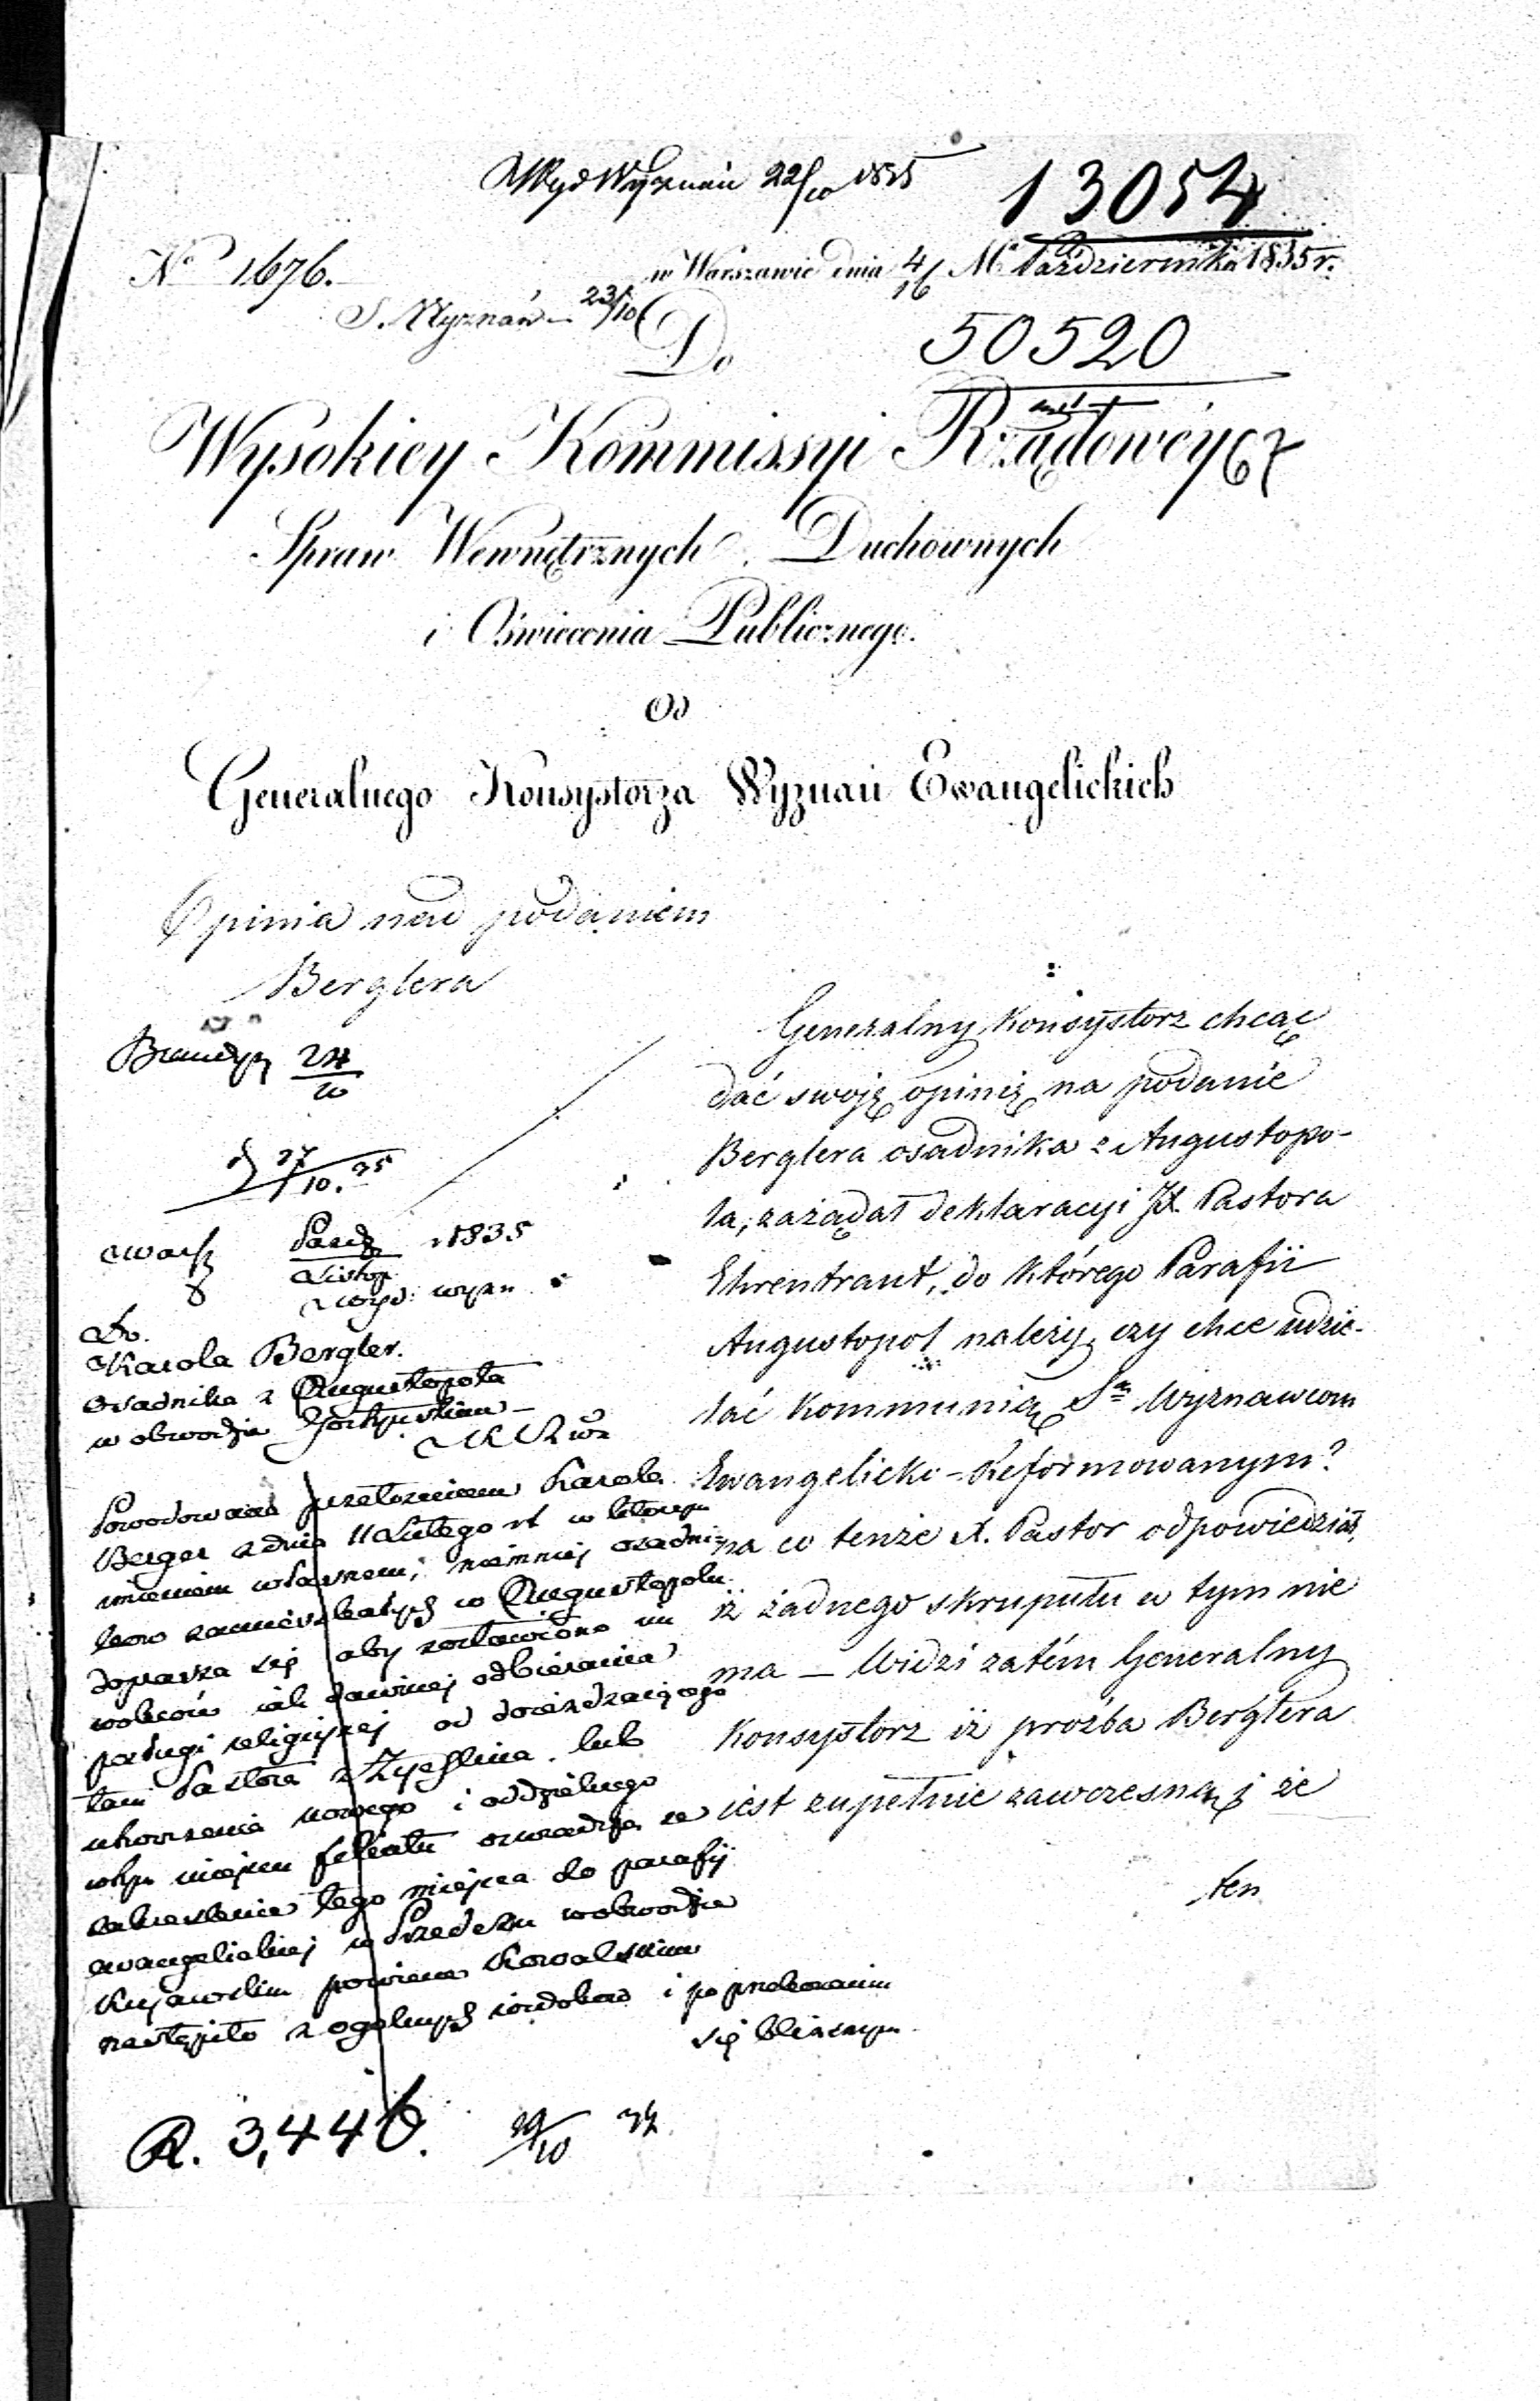 Wyd Wyznań 22/10 1835
13054
No 1676.
w Warszawie dnia 4/16 Mca Października 1835 r.
S. Wyznań 23/10
Do
50520
Wysokiey Kommissyi Rządowéy
Spraw Wewnętrznych Duchownych
i Oświecenia Publicznego.
Od
Generalnego Konsystorza Wyznań Ewangelickich
Opinia nad podaniem
Berglera
24/10
27/10. 35
Generalny Konsystorz chcąc
dać swoję opinię na podanie
Berglera osadnika z Augustopo-
la, zażądał deklaracyi JX. Pastora
Ehrentraut, do którego Parafii
Augustopol należy, czy chce udzie-
lać Kommunią Stą Wyznawcom
Ewangelicko-Reformowanym?
na co tenże X. Pastor odpowiedział,
iż żadnego skrupułu w tym nie
ma — Widzi zatém Generalny
Konsystorz iż prośba Berglera
iest zupełnie zawczesną i że
ten
Paźdz 1835
Listop
wyzn
Do
Karola Bergler.
Osadnika z Augustopola
w obwodzie Gostyńskim —
Powodowana przełożeniem Karola
Berger z dnia 11 Lutego rb w którym
imieniem własnem, niemniej osadni-
ków zamieszkałych w Augustopolu
doprasza się aby zostawiono im
wolność jak dawniej odbierania
posługi religijnej od dojeżdzaiącego
tam Pastora z Żychlina lub
utworzenia nowego i oddzielnego
w tym miejscu filiału ze
tego miejsca do parafij
ewangelickiej w Przedeczu w obwodzie
Kujawskim powiecie Kowalskim
nastąpiło z ogólnych widoków i po przekonaniu
się bliższym
R. 3,446.
29/10